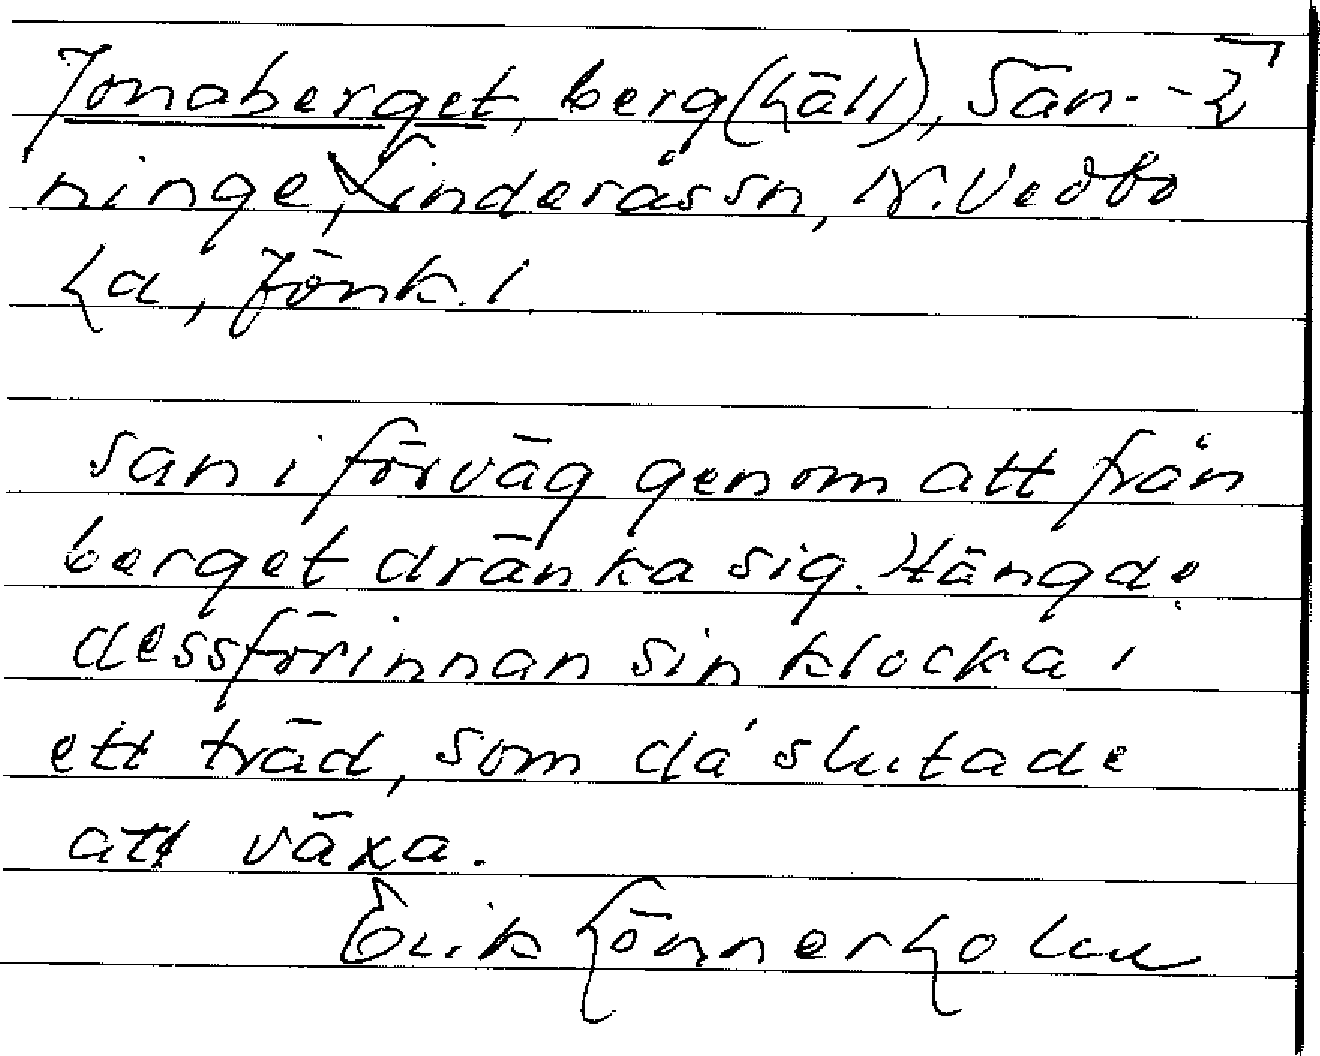 Jonaberget, berg (häll), Sän- - 2
ninge, Linderås sn, N. Vedbo
ha, Jönk. l
san i förväg genom att från
berget dränka sig. Hängde
dessförinnan sin klocka i
ett träd, som då slutade
att växa.
Erik Lönnerholm